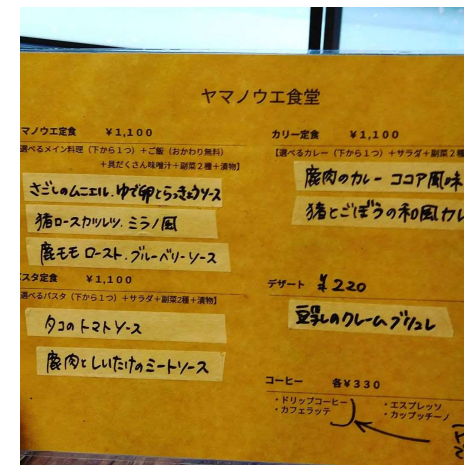 ヤマノウエ食堂
マノウエ定食 ¥1,100
選べるメイン料理(下から1つ)+ご飯(おかわり無料)
+具だくさん味噌汁+副菜2種+漬物】
さごしのムニエル.ゆで卵とらっきょうソース
猪ロースカツレツ.ミラノ風
鹿モモ ロースト.ブルーベリーソース
スタ定食 ¥1,100
選べるパスタ(下から1つ)+サラダ+副菜2種+漬物】
タコのトマトソース
鹿肉としいたけのミートソース
カリー定食 ¥1,100
【選べるカレー(下から1つ)+サラダ+副菜2種
鹿肉のカレー ココア風味
猪とごぼうの和風カレ
デザート ¥220
豆乳のクレームブリュレ
コーヒー 各¥330
・ドリップコーヒー ・エスプレッソ
・カフェラッテ ・カップッチーノ